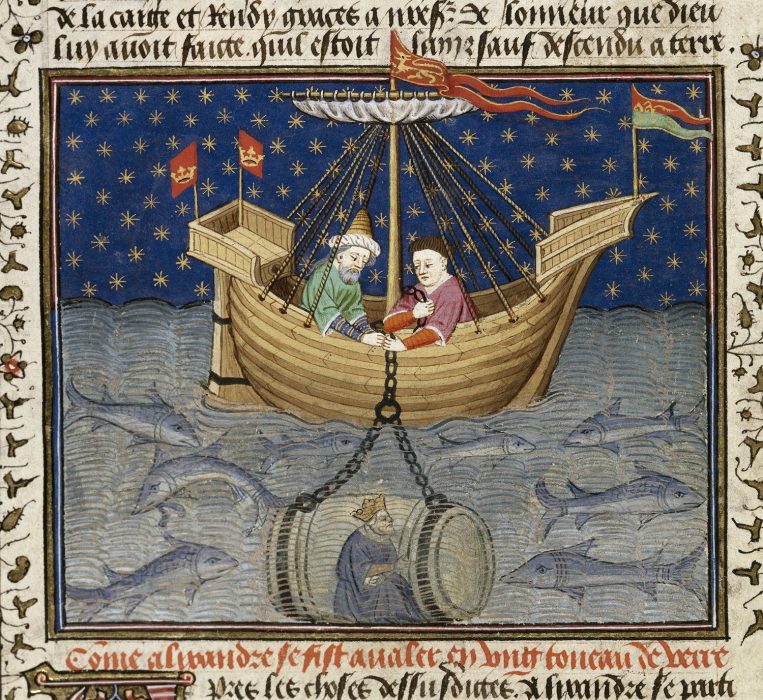 de la caige et rendy graces a nreſ. de lonneur que dieu
luy auoit faicte quil eſtoit sain ⁊ sauf deſcendu a terre.
Cõme alixandre ſe fiſt aualer en vng toneau de verre
Apres les choſes deſſuſdittes. Alixandre ſe parti